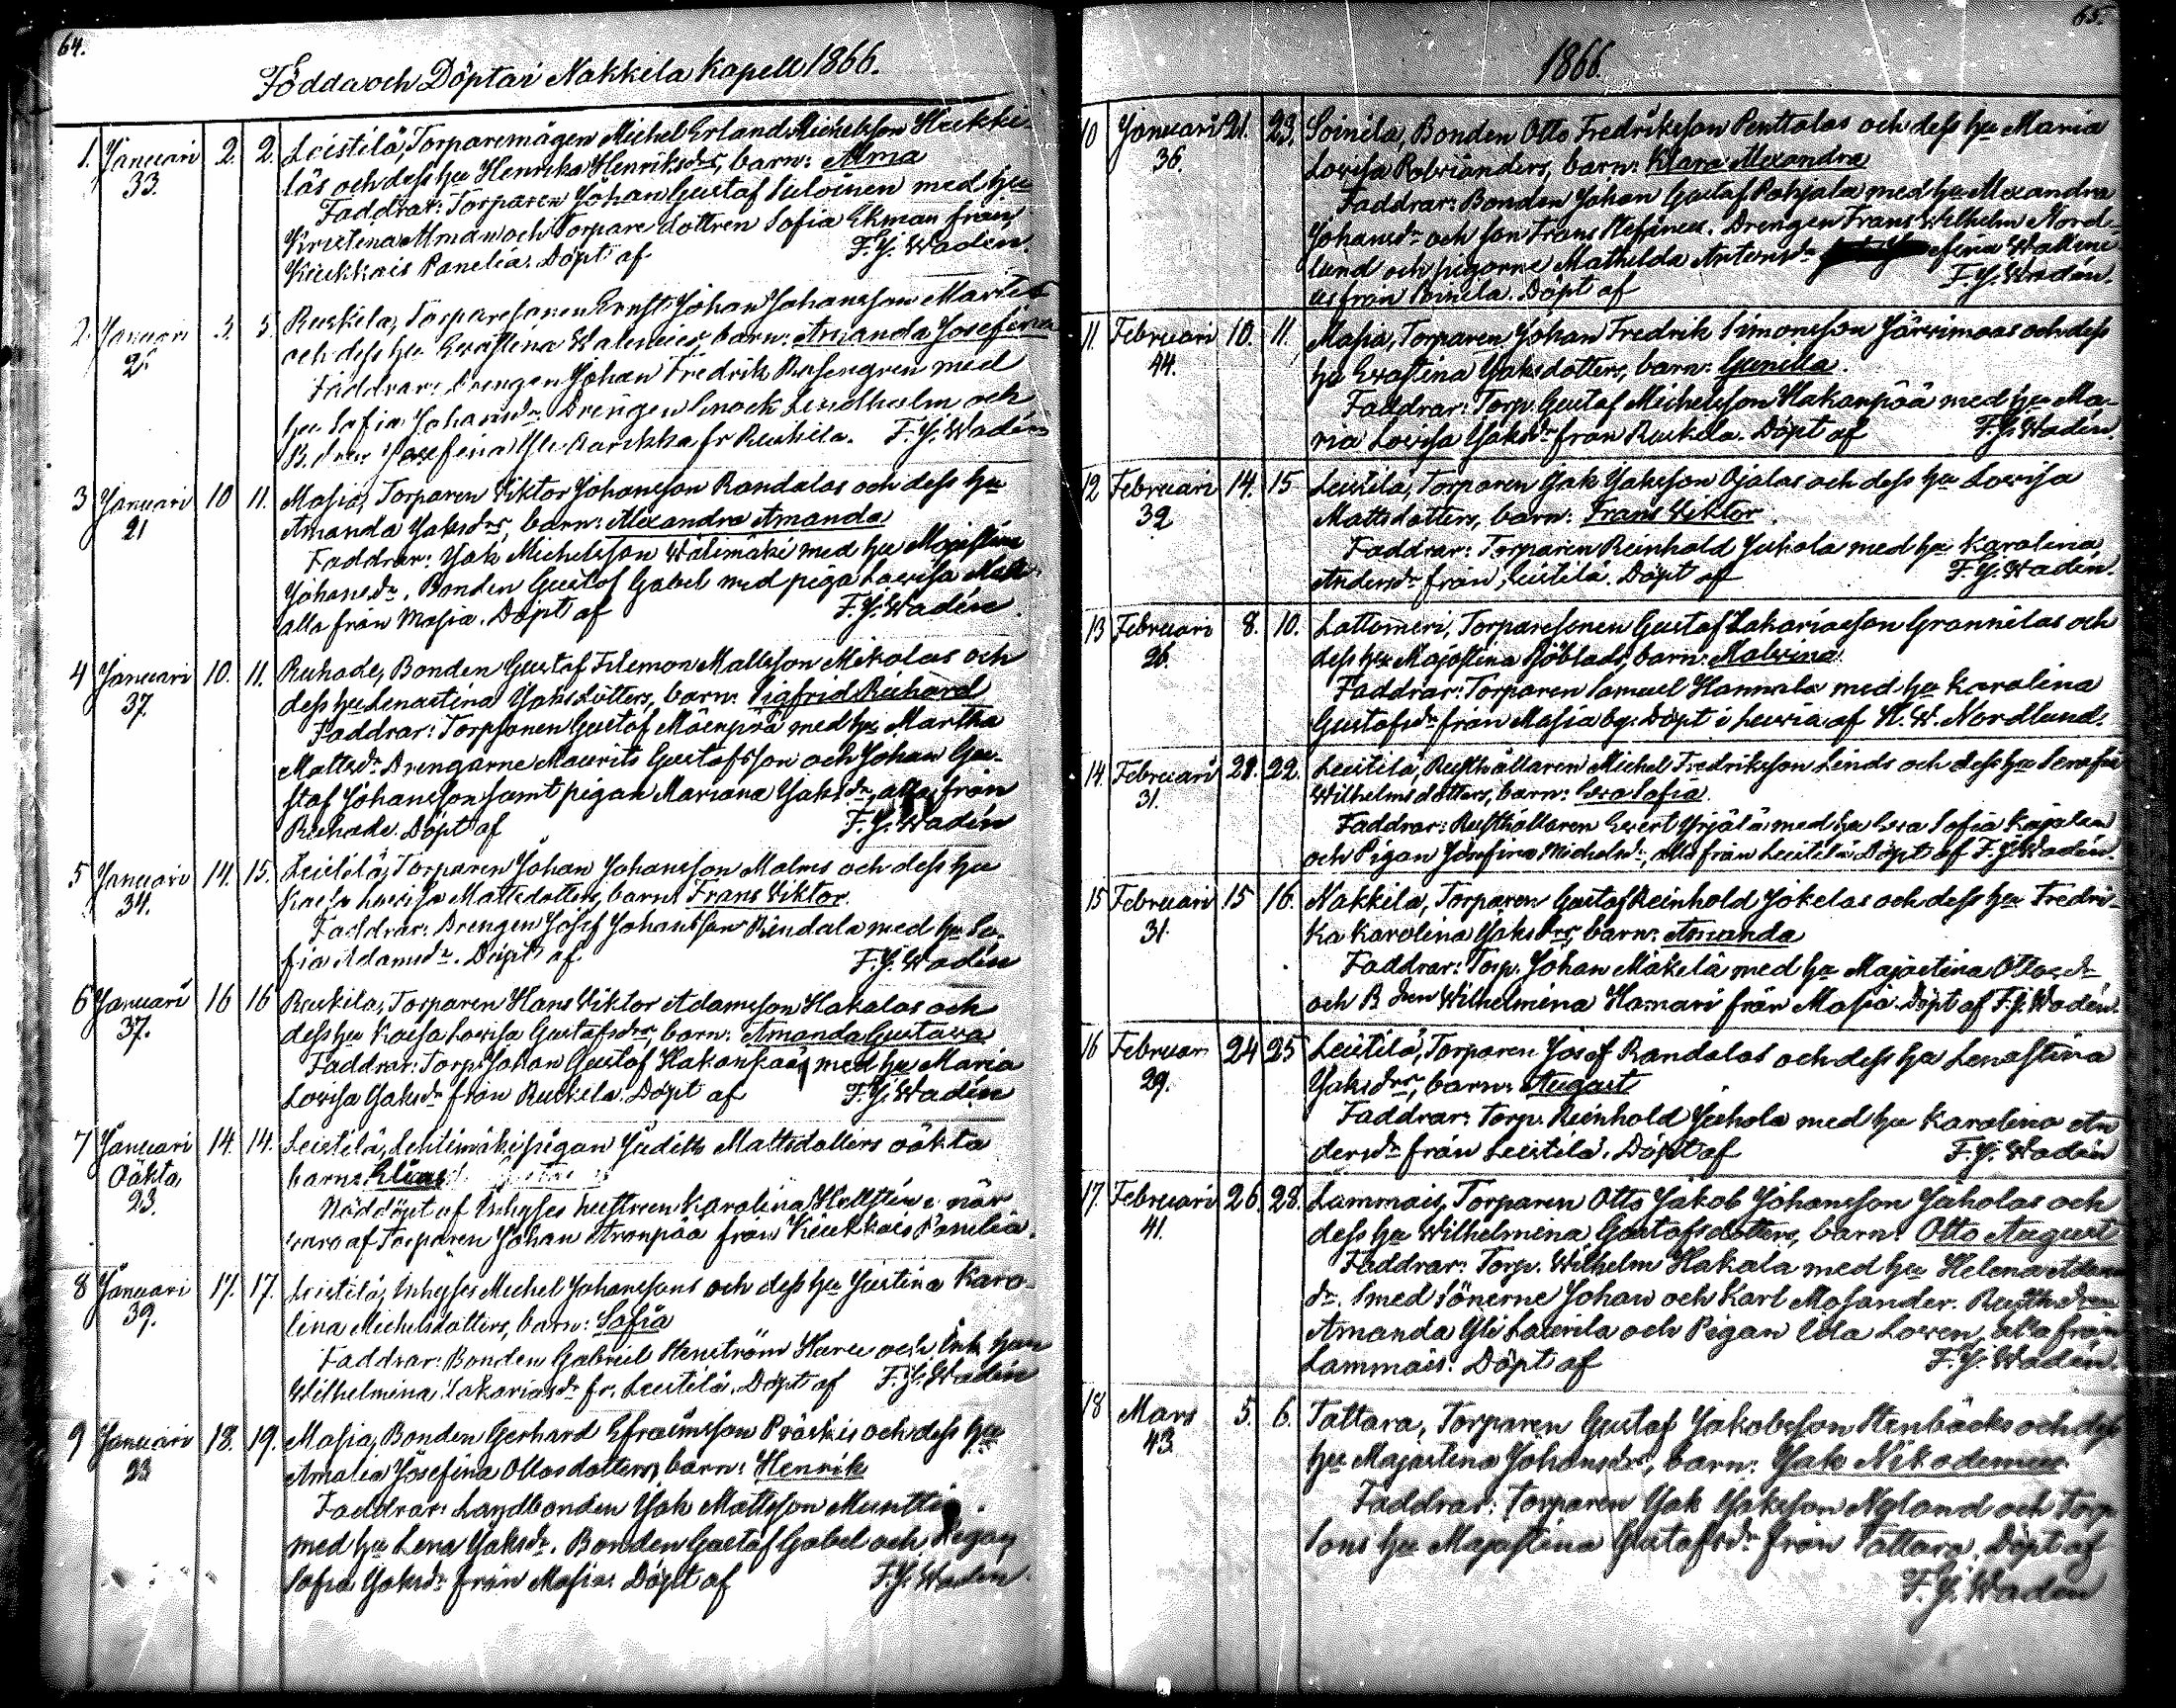 64.
Födda och Döpta i Nakkila Kapell 1866.
1. Januari 2. 2. Leistilä, Torparemågen Michel Erland Michelsson Heikki-
33. läs och dess hu Henrika Henriksdrs, barn: Alma
Faddrar: Torparen Johan Gustaf Suloinen med hu
Kristina Alman och Torpare dottren Sofia Ekman från
Kiukkais Panelia. Döpt af F. J. Wadén.
2. Januari 3. 5. Ruskila, Torparesonen Ernst Johan Johansson
och dess hu Evastina barn: Amanda Josefina
Faddrar: Drengen Johan Fredrik Rosengren med
hu Sofia Johansdr. Drengen Enock Lindholm och
Josefina fr Ruskila. F. J. Wadén
3 Januari 10 11. Masia, Torparen Viktor Johansson Randalas och dess hu
21 Amanda Jaksdrs, barn: Alexandra Amanda
Faddrar: Jak Michelsson Wälimäki med hu Majastina
Johansdr. Bonden Gustaf Gabel med piga Lovisa
alla från Masia. Döpt af F. J. Wadén.
4 Januari 10. 11. Ruhade, Bonden Gustaf Filemon Mattsson Mikolas och
37. dess hu Lenastina Jaksdotters, barn: Sigfrid Richard
Faddrar: Torpsonen Gustaf Mäenpää med hu Martha
Mattsdr. Drengarne Maurits Gustafsson och Johan Gu-
staf Johansson samt pigan Mariana Jaksdr, alla från
Ruhade. Döpt af F. J. Wadén
5 Januari 14. 15. Leistilä, Torparen Johan Johansson Malms och dess hu
34. Kaisa Lovisa Mattsdotters, barn: Frans Viktor.
Faddrar: Drengen Josef Johansson Rindala med hu So-
fia Adamsdr. Döpt af F. J. Wadén
6 Januari 16 16 Ruskila, Torparen Hans Viktor Adamsson Hakalas och
37. dess hu Kaisa Lovisa Gustafsdrs, barn: Amanda Gustava
Faddrar: Torp. Johan Gustaf Hakanpää med hu Maria
Lovisa Jaksdr från Ruskila. Döpt af F. J. Wadén
7 Januari 14. 14. Leistilä, Lehtimäki pigan Judith Mattsdotters oäkta
Oäkta barn: Elias
23. Nöddöpt af Inhyses hustrun Karolina Hellstén i när
varo af Torparen Johan Stronpää från Kiukkais Panelia.
8 Januari 17. 17. Leistilä, Inhyses Michel Johanssons och dess hu Justina Karo-
39. lina Michelsdotters, barn: Sofia
Faddrar: Bonden Gabriel Stenström Haru och Ink. hon
Wilhelmina Sakariasdr fr. Leistilä. Döpt af F. J. Wadén
9 Januari 18. 19. Masia, Bonden Gerhard Efraimsson Präskis och dess hu
23 Amalia Josefina Ottosdotters, barn: Henrik
Faddrar: Landbonden Jak Mattsson Munttin
med hu Lena Jaksdr. Bonden Gustaf Gabel och Pigan
Sofia Jaksdr från Masia. Döpt af F. J. Wadén.
65.
1866.
10 Januari 21. 23. Soinila, Bonden Otto Fredriksson Penttalas och dess hu Maria
36. Lovisa Robrianders, barn: Klara Alexandra
Faddrar: Bonden Johan Gustaf Pohjala med hu Alexandra
Johansdr och son Frans Stefanus. Drengen Frans Wilhelm Nord-
lund och pigorne Mathilda Antonsdr efina Walleni
us från Soinila. Döpt af F. J. Wadén.
11. Februari 10. 11. Masia, Torparen Johan Fredrik Simonsson Järvimaas och dess
44. hu Evastina Jaksdotters, barn: Gunilla.
Faddrar: Torp. Gustaf Michelsson Hakanpää med hu Ma-
ria Lovisa Jaksdr från Ruskila. Döpt af F. J. Wadén.
12 Februari 14. 15 Leistilä, Torparen Jak Jaksson Ojalas och dess hu Lovisa
39. Mattsdotters, barn: Frans Viktor.
Faddrar: Torparen Reinhold Juhola med hu Karolina
Andersdr från Leistilä. Döpt af F. J. Wadén.
13 Februari 8. 10. Lattomeri, Torparesonen Gustaf Zakariasson Grannilas och
26. dess hu Majastina Sjöblads, barn: Malvina.
Faddrar: Torparen Samuel Hannula med hu Karolina
Gustafsdr från Masia by. Döpt i Luvia af K. W. Nordlund.
14. Februari 28. 22. Leistilä, Rusthållaren Michel Fredriksson Linds och dess hu Serafia
31. Wilhelmsdotters, barn: Eva Sofia.
Faddrar: Rusthållaren Evert Yrjälä med hu Eva Sofia Kajalen
och Pigan Josefina Michelsdr, alla från Leistilä Döpt af F. J. Wadén.
15 Februari 15 16. Nakkila, Torparen Gustaf Reinhold Jokelas och dess hu Fredri-
31. ka Karolina Jaksdrs, barn: Amanda
Faddrar: Torp. Johan Mäkelä med hu Majastina Ottosdr
och B dren Wilhelmina Hamari från Masia. Döpt af F. J. Wadén.
16 Februari 24 25 Leistilä, Torparen Josef Randalas och dess hu Lenastina
29. Jaksdrs, barn: August
Faddrar: Torp. Reinhold Juhola med hu Karolina An
dersdr från Leistilä. Döpt af F. J. Wadén
17. Februari 26. 28. Lammais, Torparen Otto Jakob Johansson Jäholas och
41. dess hu Wilhelmina Gustafsdotters, barn: Otto August
Faddrar: Torp. Wilhelm Hakala med hu Helena Adams
dr. Smed sönerne Johan och Karl Mosander. Rusth. dren
Amanda Yli Laurila och Pigan Ulla Loven, alla från
Lammais. Döpt af F. J. Wadén.
18 Mars 5. 6. Tattara, Torparen Gustaf Jakobsson Stenbäcks och dess
43. hu Majastina Johansdrs, barn: Jak Nikodemus
Faddrar: Torparen Jak Jaksson Nyland och Torp
sons hu Majastina Gustafsdr från Tattara. Döpt af
F. J. Wadén